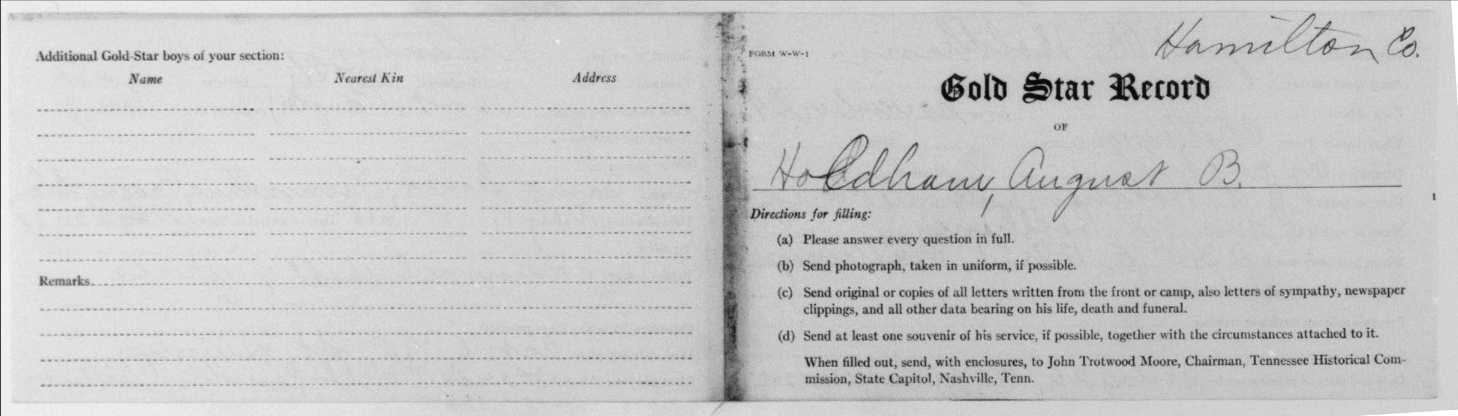 Additional Gold-Star boys of your section:
Name Nearest Kin Address
Remarks
Hamilton Co.
FORM W-W-1
Gold Star Record
OF
Holdham, August B.
Directions for filling:
(a) Please answer every question in full.
(b) Send photograph, taken in uniform, if possible.
(c) Send original or copies of all letters written from the front or camp, also letters of sympathy, newspaper
clippings, and all other data bearing on his life, death and funeral.
(d) Send at least one souvenir of his service, if possible, together with the circumstances attached to it.
When filled out, send, with enclosures, to John Trotwood Moore, Chairman, Tennessee Historical Com-
mission, State Capitol, Nashville, Tenn.